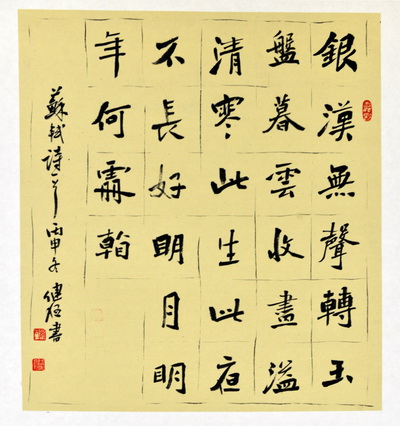 銀漢無聲轉玉
盤暮雲收盡溢
清寒此生此夜
不長好明月明
年何處看
蘇軾詩一首 丙申冬 健書